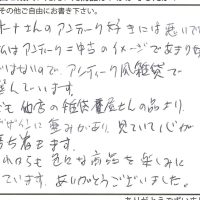 その他ご自由にお書き下さい。
ナさんのアンティーク好きには悪いけ
私はアンティーク＝中古のイメージであまり好
ではないので、アンティーク風雑貨で
足しています。
でも他店の雑貨屋さんの品より、
デザインに重みがあり、見ていて心が
落ち着きます。
これからも色々な商品を楽しみに
ています。ありがとうございました。
ありがとうございま